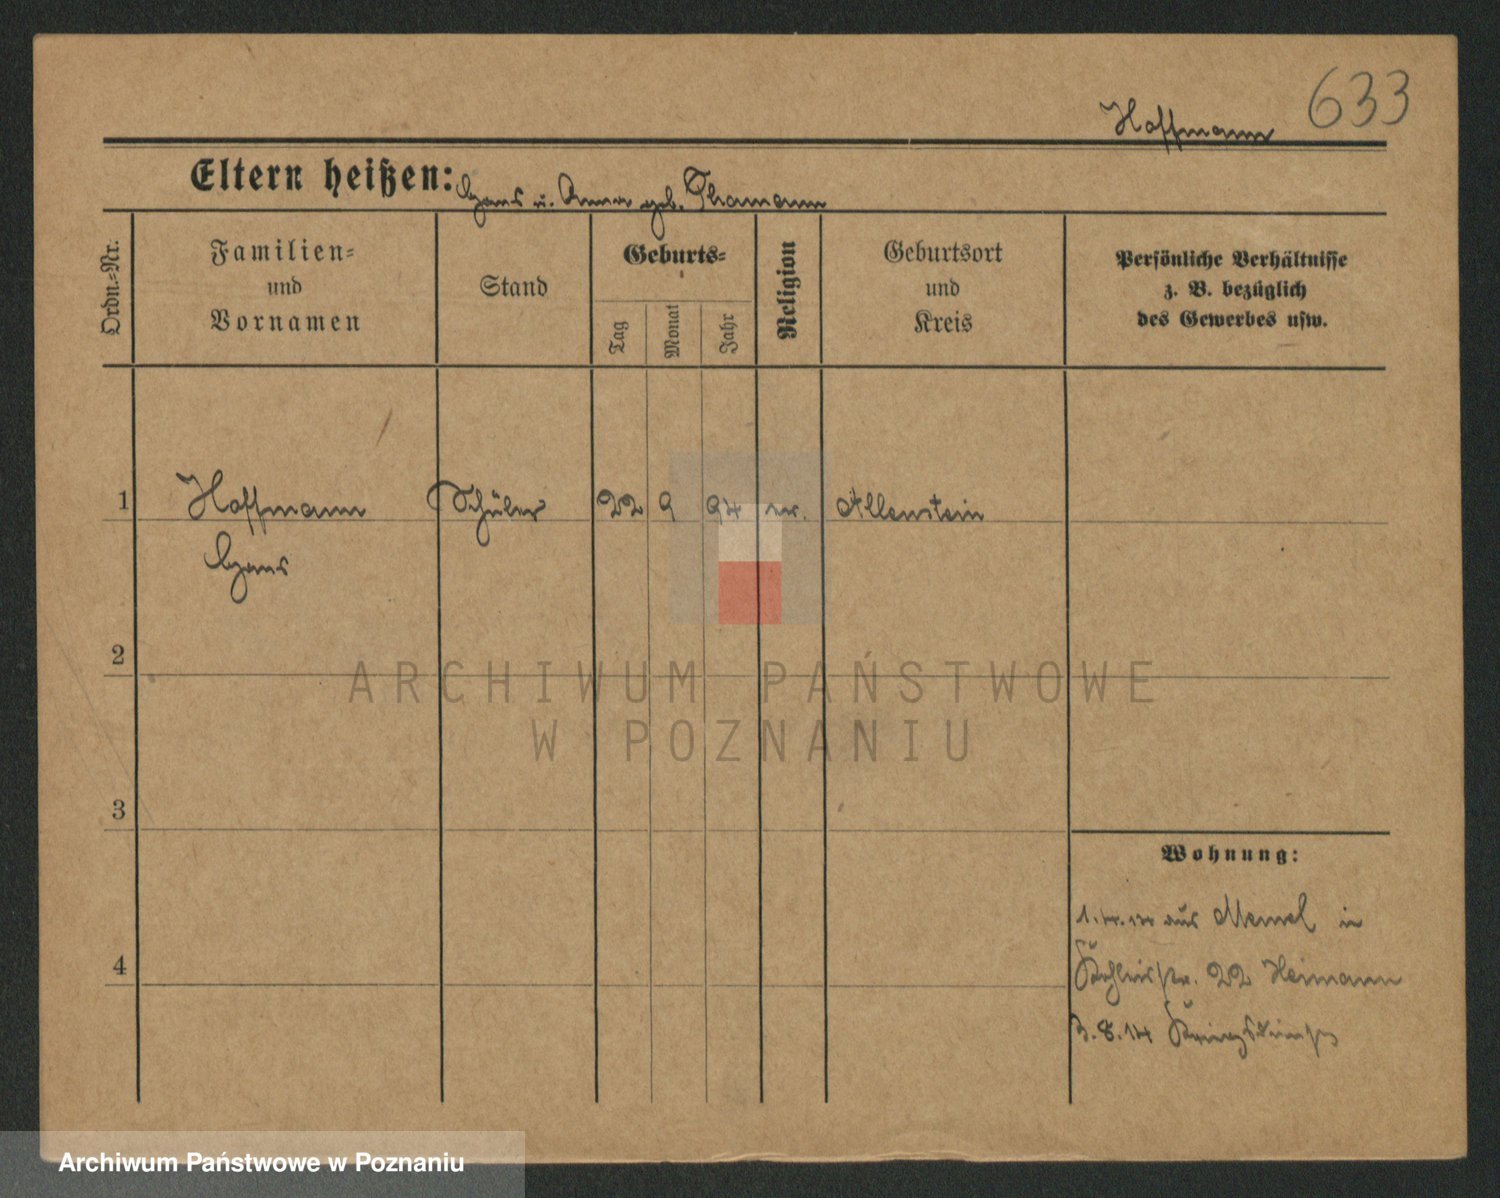 633
Hoffmann
Eltern heißen: Hans u. Anna geb. Thomann
Ordn.-Nr.
Familien-
und
Vornamen
Stand
Geburts-
Tag
Monat
Jahr
Religion
Geburtsort
und
Kreis
Persönliche Verhältnisse
z. B. bezüglich
des Gewerbes usw.
1 Hoffmann Schüler 22 9 94 ev. Allenstein
Hans
2
ARCHIWUM PAŃSTWOWE
W POZNANIU
3
Wohnung:
aus Memel in
4
22 Heimann
3.8.14
Archiwum Państwowe w Poznaniu